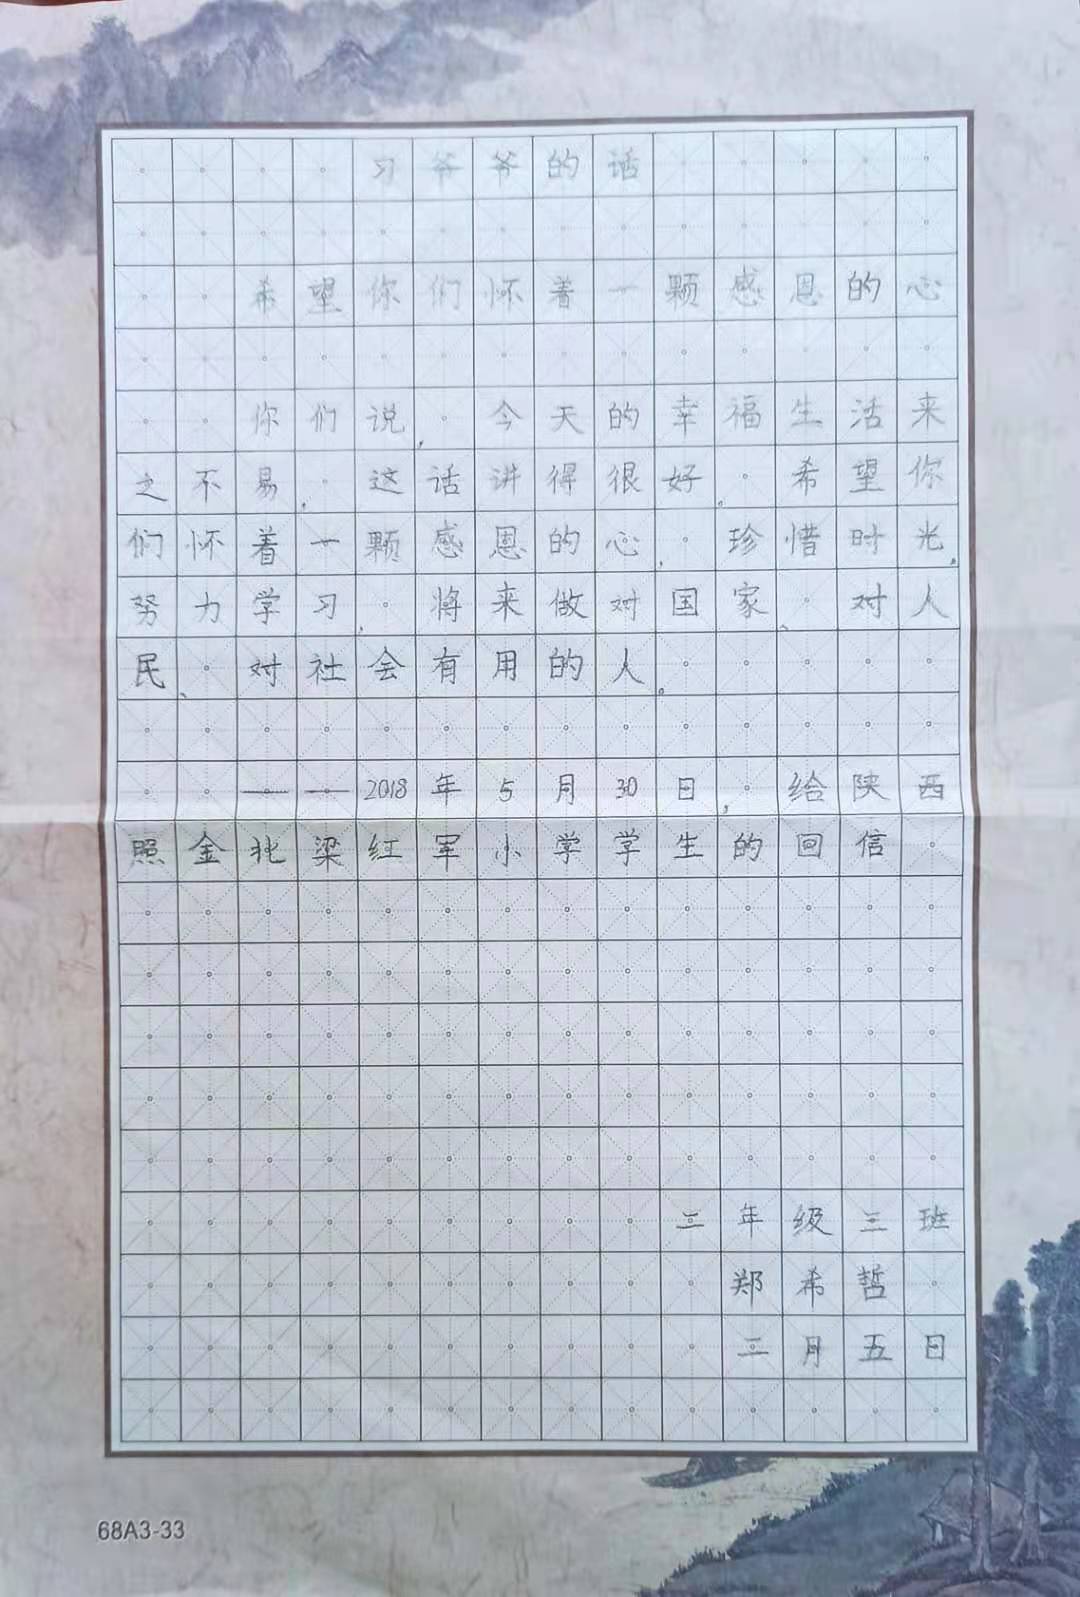 习爷爷的话
希望你们怀着一颗感恩的心
你们说，今天的幸福生活来
之不易，这话讲得很好。希望你
们怀着一颗感恩的心，珍惜时光，
努力学习，将来做对国家、对人
民、对社会有用的人。
——2018年5月30日，给陕西
照金北梁红军小学学生的回信
二年级三班
郑希哲
二月五日
68A3-33